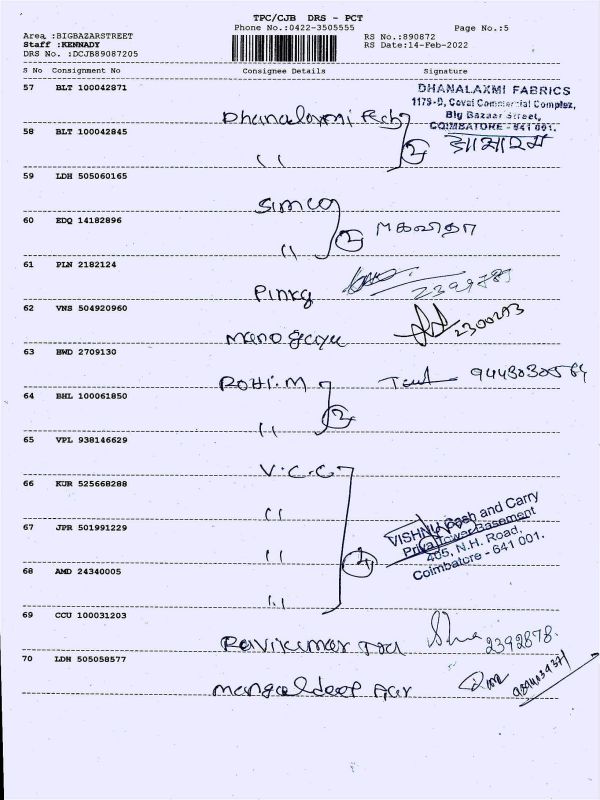 TPC/CJB DRS - PCT
Phone No.:0422-3505555 Page No.:5
Area :BIGBAZARSTREET RS No.:890872
Staff :KENNADY RS Date:14-Feb-2022
DRS No. :DCJB89087205
S No Consignment No Consignee Details Signature
57 BLT 100042871 DHANALAXMI FABRICS
1179-D, Covai Commercial Complex,
Big Bazaar Street,
COIMBATORE - 641 001.
Dhanalaxmi Fab
58 BLT 100042845 2
" 
59 LDH 505060165
Simco
60 EDQ 14182896 2
"
61 PLN 2182124
Pinky
62 VNS 504920960 2300293
63 BWD 2709130
ROHI.M 9443030564
64 BHL 100061850 2
"
65 VPL 938146629
V.C.C
66 KUR 525668288
"
VISHNU Cash and Carry
Priya Tower Basement
405, N.H. Road,
Coimbatore - 641 001.
67 JPR 501991229
"
4
68 AMD 24340005
"
69 CCU 100031203
Ravikumar 2392878.
70 LDH 505058577
Mangaldeep